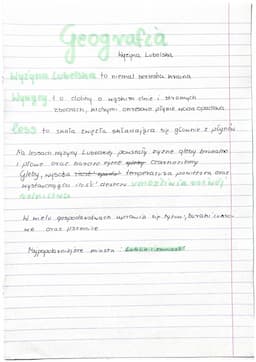 Geografia
Wyżyna Lubelska
Wyżyna Lubelska to niemal
Wąwozy t o doliny o wąskim dnie i stromych
zboczach, którymi okresowo płynie woda opadowa
less to skała zwięzła składająca się głównie z pyłów
Na lessach wyżyny Lubelskiej powstały żyzne gleby brunatne
i płowe oraz bardzo żyzne gleby czarnoziemy
Gleby, wysoka ilość temperatura powietrza oraz
wystarczająca ilość deszczu umożliwia rozwój
rolnictwa
W wielu gospodarstwach uprawia się tytoń, buraki cukro-
we oraz pszenice
Najpopularniejsze miasta : Lublin i Zamość